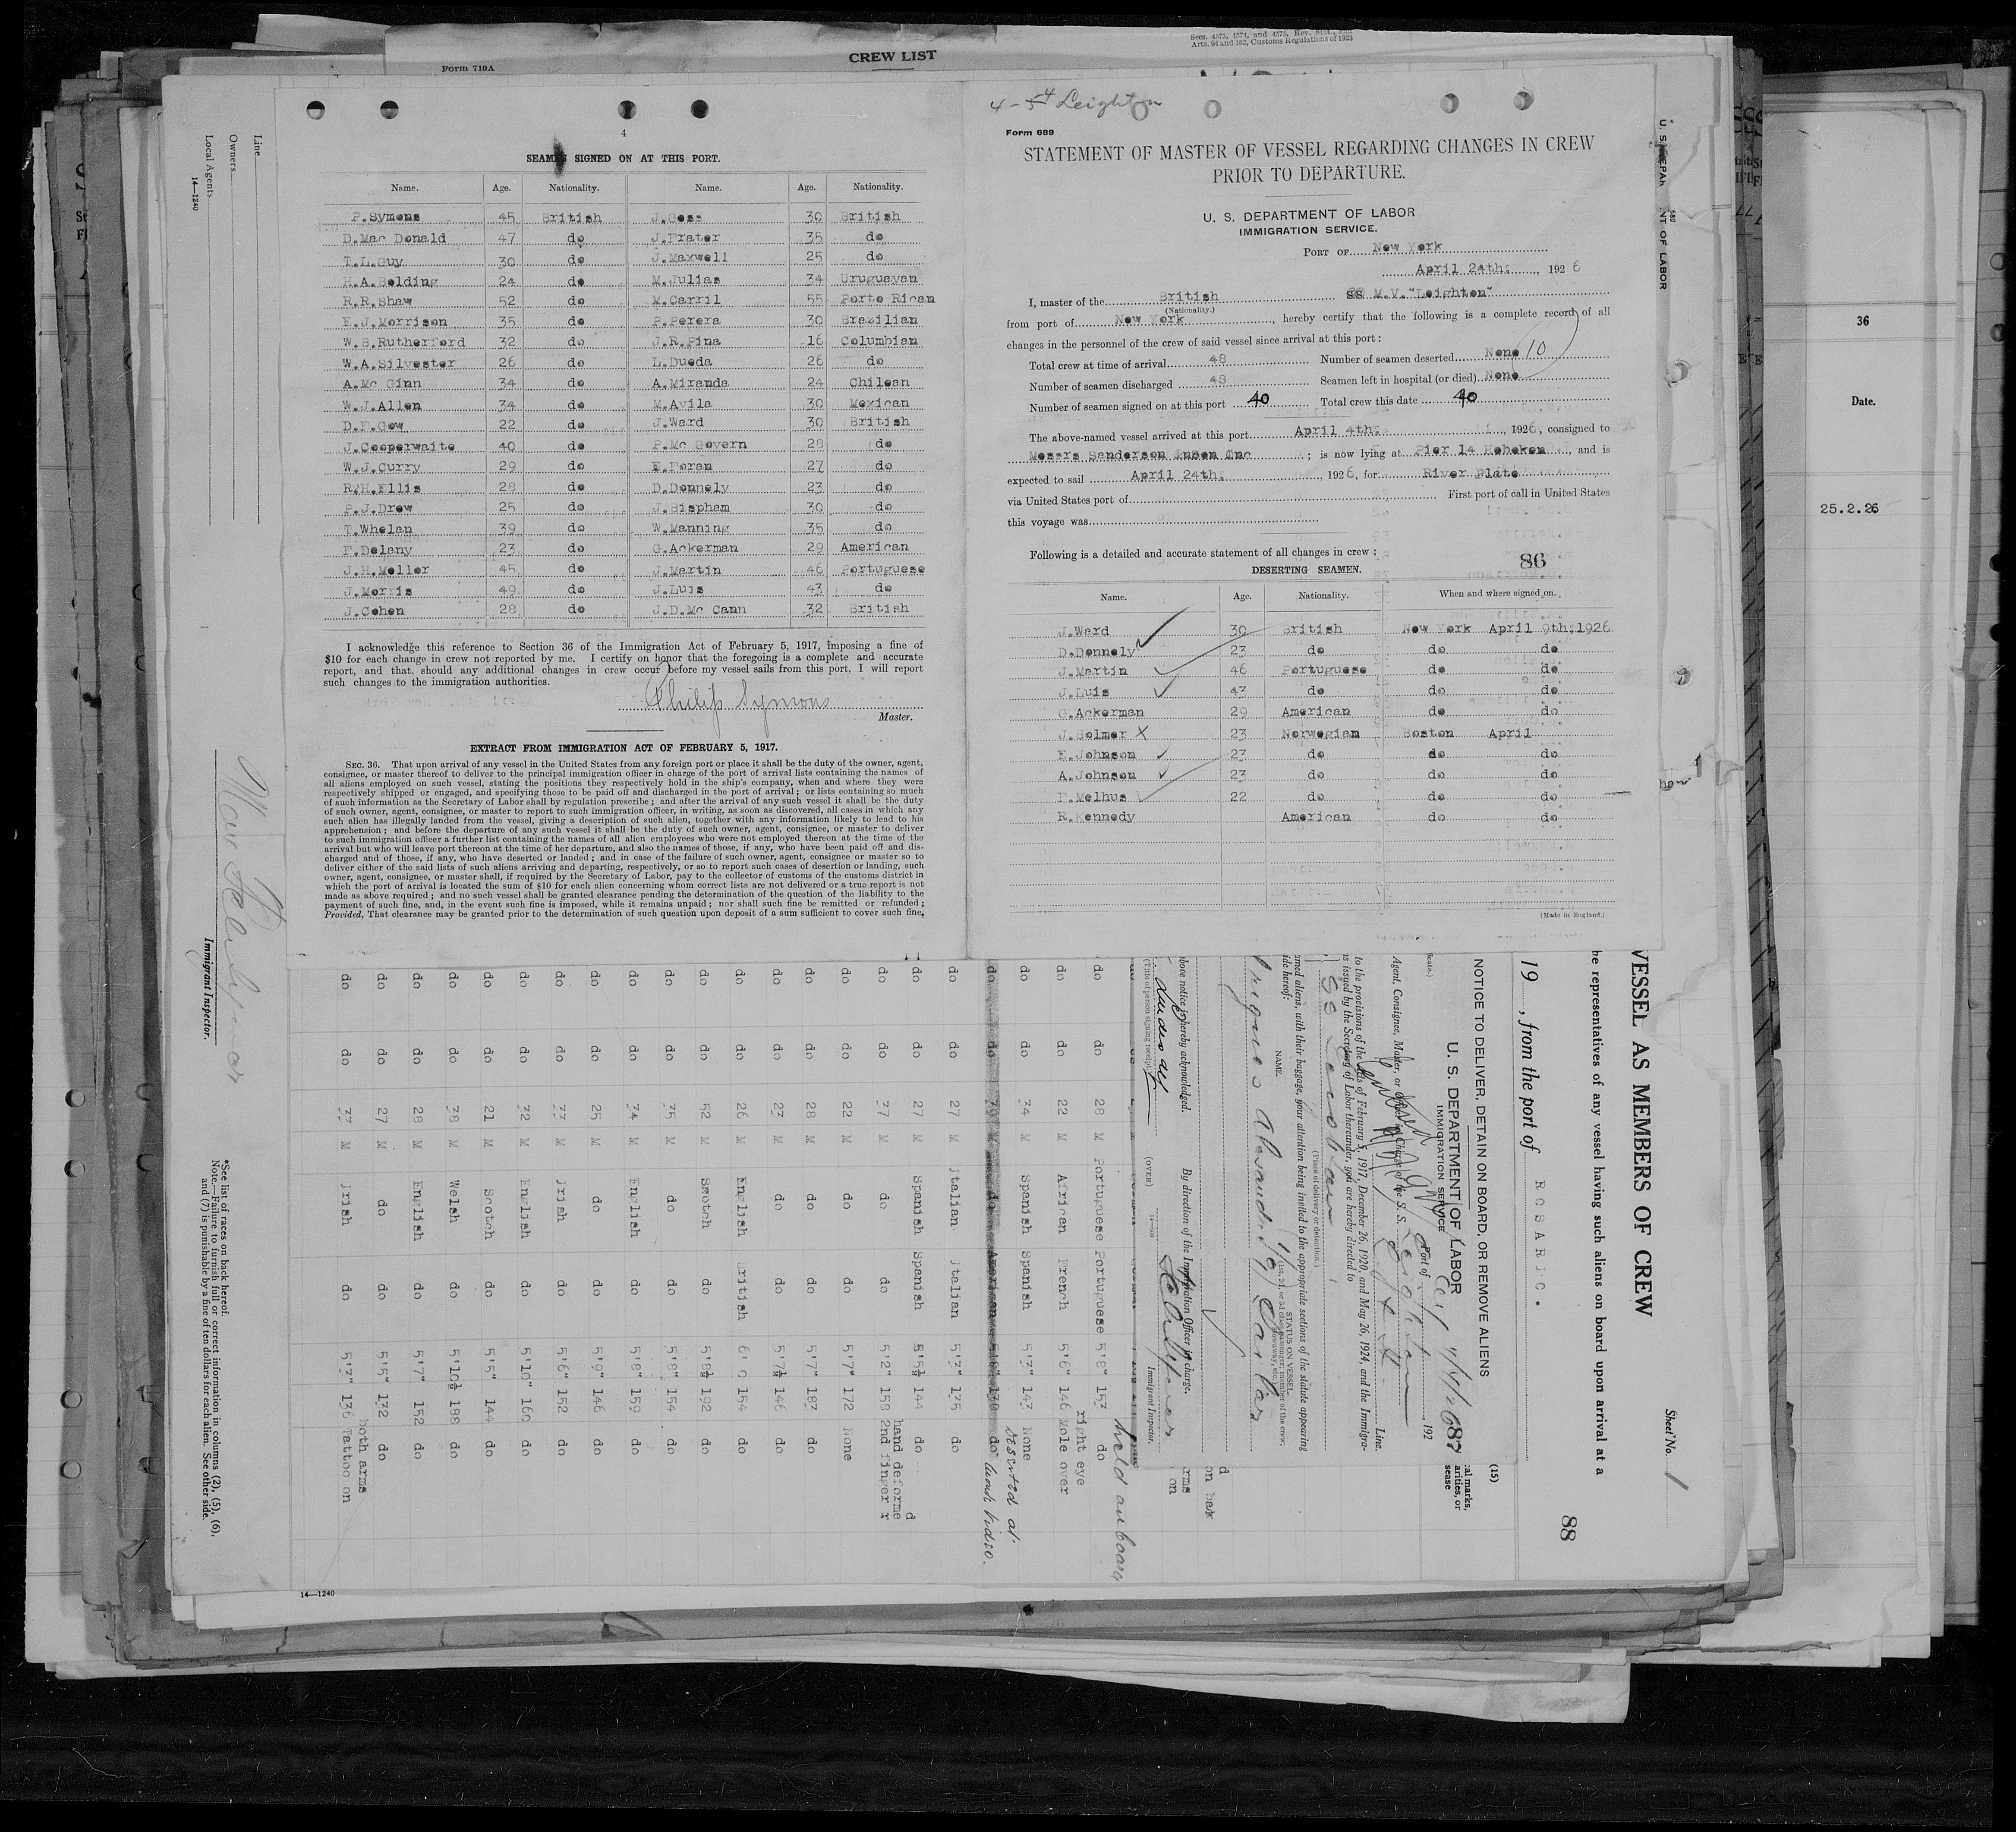 Secs. 4573, 4574, and 4575, Rev. Stat., and
Arts. 94 and 162, Customs Regulations of 1923
CREW LIST
Form 710A
4
SEAMEN SIGNED ON AT THIS PORT.
Name. Age. Nationality. Name. Age. Nationality.
P.Symons 45 British J.Goss 30 British
D.Mac Donald 47 do J.Prater 35 do
T.L.Guy 30 do J.Maxwell 25 do
H.A.Belding 24 do M.Julias 34 Uruguayan
R.R.Shaw 52 do M.Carril 55 Porto Rican
E.J.Morrison 35 do P.Perera 30 Brazilian
W.S.Rutherford 32 do J.R.Pina 16 Columbian
W.A.Silvester 26 do L.Dueda 26 do
A.Mc Ginn 34 do A.Miranda 24 Chilean
W.J.Allen 34 do M.Avila 30 Mexican
D.F.Gow 22 do J.Ward 30 British
J.Cooperwaite 40 do P.Mc Govern 28 do
W.J.Curry 29 do E.Foran 27 do
R.H.Ellis 28 do D.Donnely 23 do
P.J.Drew 25 do J.Bispham 30 do
T.Whelan 39 do W.Manning 35 do
F.Delany 23 do G.Ackerman 29 American
J.H.Meller 45 do J.Martin 46 Portuguese
J.Morris 49 do J.Luis 43 do
J.Cohen 28 do J.D.Mc Cann 32 British
I acknowledge this reference to Section 36 of the Immigration Act of February 5, 1917, imposing a fine of
$10 for each change in crew not reported by me. I certify on honor that the foregoing is a complete and accurate
report, and that, should any additional changes in crew occur before my vessel sails from this port, I will report
such changes to the immigration authorities.
Philip Symons
Master.
EXTRACT FROM IMMIGRATION ACT OF FEBRUARY 5, 1917.
SEC. 36. That upon arrival of any vessel in the United States from any foreign port or place it shall be the duty of the owner, agent,
consignee, or master thereof to deliver to the principal immigration officer in charge of the port of arrival lists containing the names of
all aliens employed on such vessel, stating the positions they respectively hold in the ship's company, when and where they were
respectively shipped or engaged, and specifying those to be paid off and discharged in the port of arrival; or lists containing so much
of such information as the Secretary of Labor shall by regulation prescribe; and after the arrival of any such vessel it shall be the duty
of such owner, agent, consignee, or master to report to such immigration officer, in writing, as soon as discovered, all cases in which any
such alien has illegally landed from the vessel, giving a description of such alien, together with any information likely to lead to his
apprehension; and before the departure of any such vessel it shall be the duty of such owner, agent, consignee, or master to deliver
to such immigration officer a further list containing the names of all alien employees who were not employed thereon at the time of the
arrival but who will leave port thereon at the time of her departure, and also the names of those, if any, who have been paid off and dis-
charged and of those, if any, who have deserted or landed; and in case of the failure of such owner, agent, consignee or master so to
deliver either of the said lists of such aliens arriving and departing, respectively, or so to report such cases of desertion or landing, such
owner, agent, consignee, or master, shall, if required by the Secretary of Labor, pay to the collector of customs of the customs district in
which the port of arrival is located the sum of $10 for each alien concerning whom correct lists are not delivered or a true report is not
made as above required; and no such vessel shall be granted clearance pending the determination of the question of the liability to the
payment of such fine, and, in the event such fine is imposed, while it remains unpaid; nor shall such fine be remitted or refunded;
Provided, That clearance may be granted prior to the determination of such question upon deposit of a sum sufficient to cover such fine,
4-54 Leighton
Form 689
STATEMENT OF MASTER OF VESSEL REGARDING CHANGES IN CREW
PRIOR TO DEPARTURE.
U. S. DEPARTMENT OF LABOR
IMMIGRATION SERVICE.
PORT OF New York
April 24th: , 1926
I, master of the British SS M.V."Leighton"
(Nationality.)
from port of New York , hereby certify that the following is a complete record of all
changes in the personnel of the crew of said vessel since arrival at this port:
Total crew at time of arrival 48 Number of seamen deserted None 10
Number of seamen discharged 48 Seamen left in hospital (or died) None
Number of seamen signed on at this port 40 Total crew this date 40
The above-named vessel arrived at this port April 4th: , 1926, consigned to
Messrs Sanderson &Son Inc ; is now lying at Pier 14 Hoboken , and is
expected to sail April 24th: , 1926, for River Plate
via United States port of First port of call in United States
this voyage was
Following is a detailed and accurate statement of all changes in crew:
86
DESERTING SEAMEN.
Name. Age. Nationality. When and where signed on.
J.Ward 30 British New York April 9th:1926
D.Donnely 23 do do do
J.Martin 46 Portuguese do do
J.Luis 43 do do do
G.Ackerman 29 American do do
J.Bolmer X 23 Norwegian Boston April
E.Johnson 23 do do do
A.Johnson 23 do do do
F.Melhus 22 do do do
R.Kennedy American do do
(Made in England.)
36
Date.
25.2.26
Line
Owners
Local Agents
14—1240
Immigrant Inspector.
*See list of races on back hereof.
Note.—Failure to furnish full or correct information in columns (2), (5), (6),
and (7) is punishable by a fine of ten dollars for each alien. See other side.
VESSEL AS MEMBERS OF CREW
Sheet No. 1
be representatives of any vessel having such aliens on board upon arrival at a
88
19 , from the port of ROSARIO.
(15)
NOTICE TO DELIVER, DETAIN ON BOARD, OR REMOVE ALIENS
U. S. DEPARTMENT OF LABOR
IMMIGRATION SERVICE
687
Port of 192
Agent, Consignee, Master, or Officer in Charge of the S. S. Leighton Line.
to the provisions of the Acts of February 5, 1917, December 26, 1920, and May 26, 1924, and the Immigra-
is issued by the Secretary of Labor thereunder, you are hereby directed to
(Place of delivery or detention.)
med aliens, with their baggage, your attention being invited to the appropriate sections of the statute appearing
ide hereof:
NAME.
STATUS ON VESSEL
By direction of the Immigration Officer in charge.
bove notice is hereby acknowledged.
Immigrant Inspector.
(Title of person signing receipt.)
(OVER)
held on board
do do 28 M Portuguese Portuguese 5'8" 153 do
do do 22 M African French 5'6" 146 Mole over
right eye
do do 34 M Spanish Spanish 5'3" 143 None
Deserted at
do do
do do 27 M Italian Italian 5'3" 135 do
do do 27 M Spanish Spanish 5'5½ 144 do
do do 37 M do do 5'2" 158 2nd finger r
hand deforme d
do do 22 M do do 5'7" 172 None
do do 28 M do do 5'7" 183 do
do do 23 M do do 5'7½ 146 do
do do 26 M English British 6' 0 154 do
do do 52 M Scotch do 5'8½ 192 do
do do 35 M do do 5'8" 154 do
do do 34 M English do 5'8" 159 do
do do 25 M do do 5'9" 146 do
do do 33 M Irish do 5'6" 152 do
do do 32 M English do 5'10" 160 do
do do 21 M Scotch do 5'5" 144 do
do do 38 M Welsh do 5'10½ 188 do
do do 28 M English do 5'7" 152 do
do do 27 M do do 5'5" 132 do
do do 33 M Irish do 5'3" 136 Tattoo on
both arms
14—1240